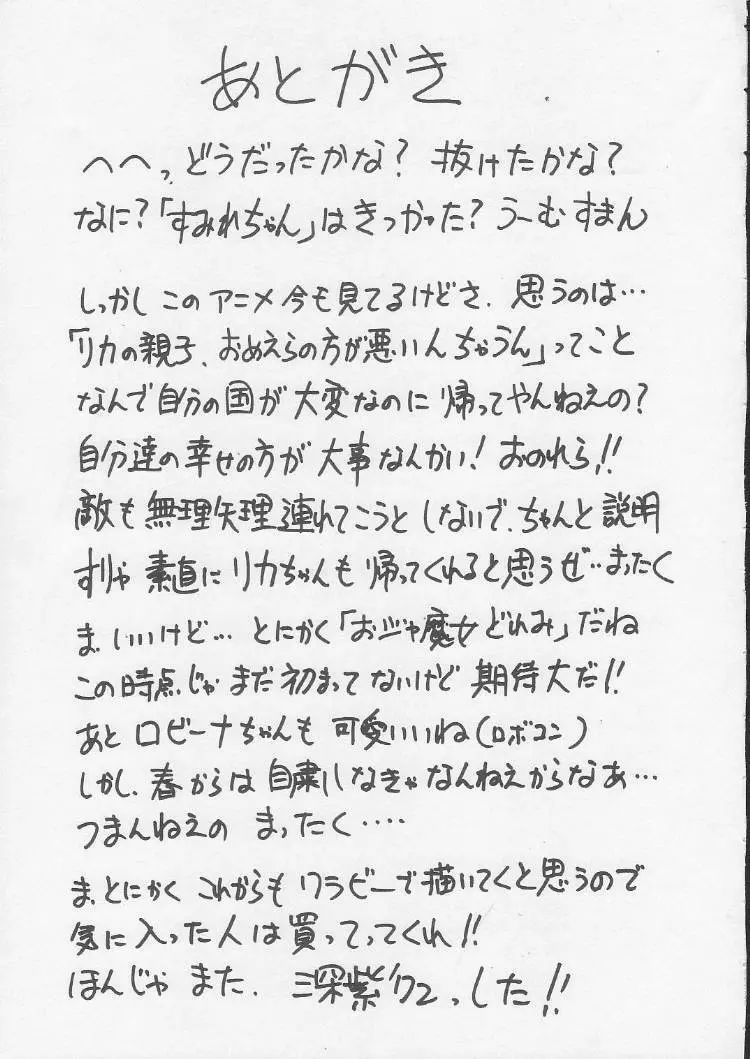 あとがき
へへっ、どうだったかな？ 抜けたかな？
なに？「すみれちゃん」はきつかった？うーむすまん
しっかしこのアニメ今も見てるけどさ、思うのは…
「リカの親子、おめえらの方が悪いんちゃうん」ってこと
なんで自分の国が大変なのに帰ってやんねえの？
自分達の幸せの方が大事なんかい！おのれら!!
敵も無理矢理連れてこうとしないで、ちゃんと説明
すりゃ素直にリカちゃんも帰ってくれると思うぜ…まったく
ま、いいけど… とにかく「おジャ魔女どれみ」だね
この時点じゃまだ初まってないけど期待大だ!!
あとロビーナちゃんも可愛いいね(ロボコン)
しかし、春からは自粛しなきゃなんねえからなあ…
つまんねえの まったく‥‥
ま、とにかくこれからもワラビーで描いてくと思うので
気に入った人は買ってってくれ!!
ほんじゃまた、深紫でっした!!